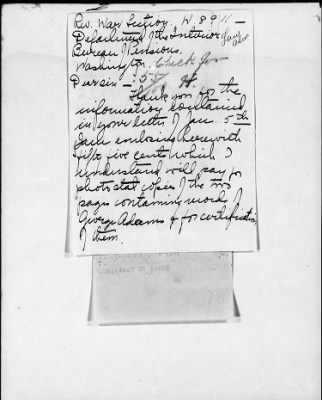 Rv. War Section, W. 8911 –
Department of the Interior
Bureau of Pensions.
Washington. Check for
Dear Sir – .55
Thank you for the
information contained
in your letter of Jan. 5th
I am enclosing herewith
fifty five cents which I
understand will pay for
photostat copies of the two
pages containing record of
George Adams & for certification
of them.